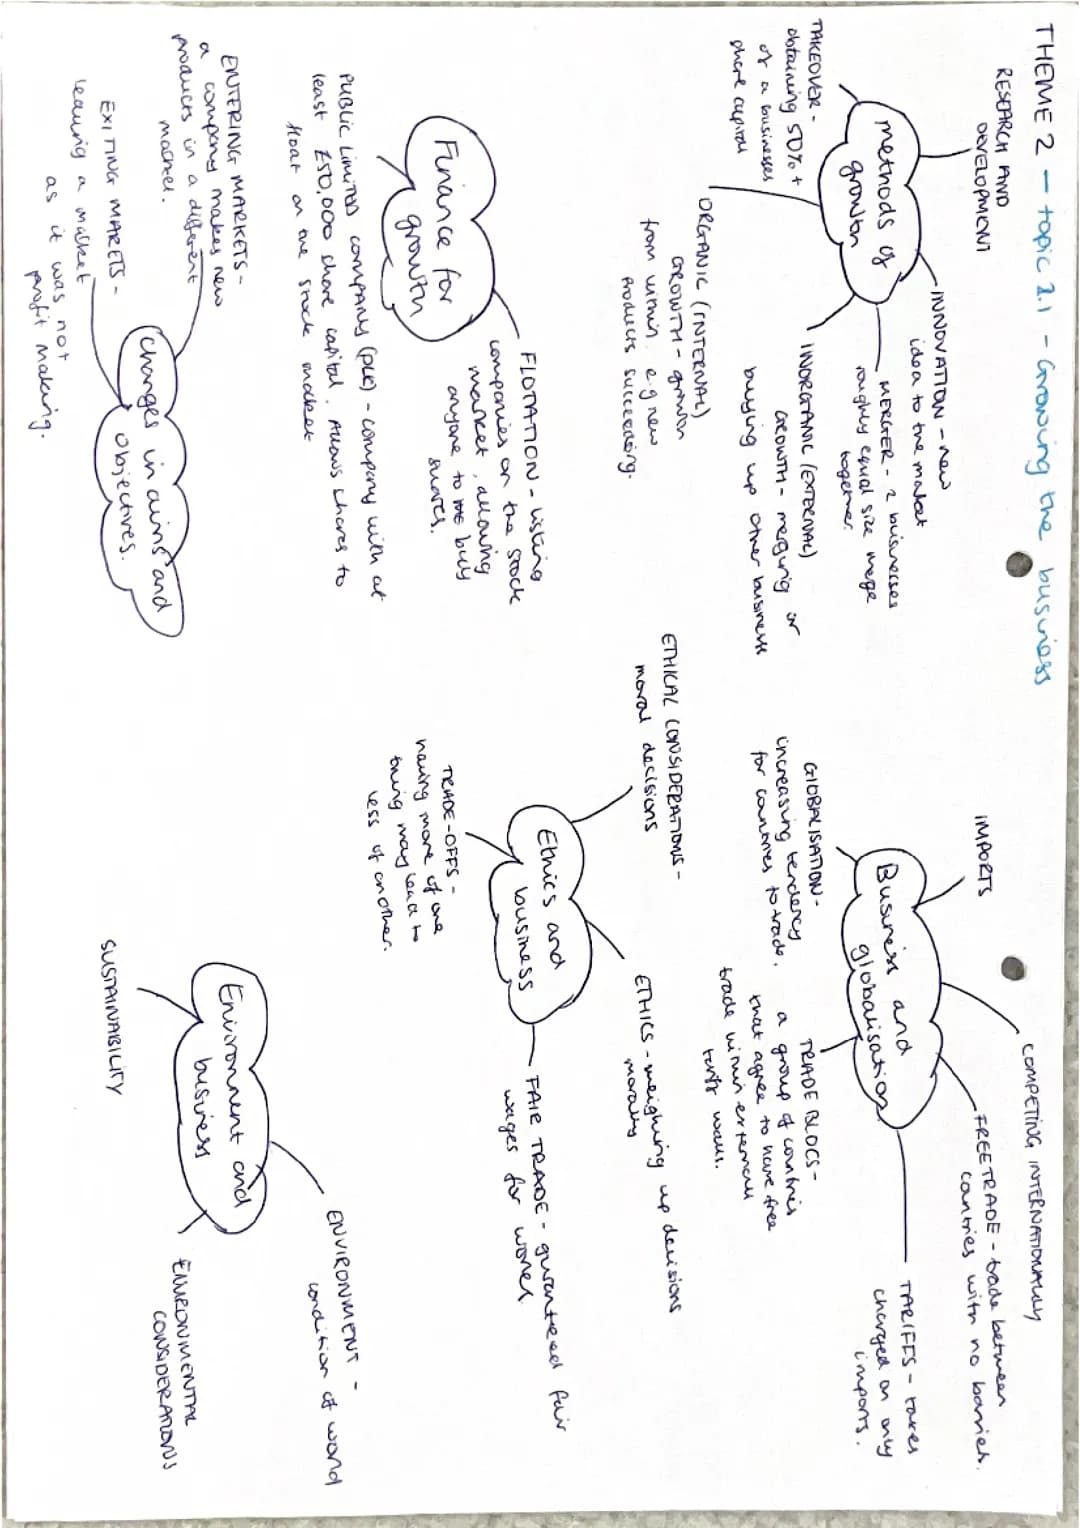 THEME 2 – topic 2.1 – Growing the business
RESEARCH AND
DEVELOPMENT
methods of
growth
INNOVATION – new
idea to the market
MERGER – 2 businesses
roughly equal size merge
together.
TAKEOVER –
obtaining 50% +
of a businesses
share capital
ORGANIC (INTERNAL)
GROWTH – growth
from within. e.g new
products succeeding.
INORGANIC (EXTERNAL)
GROWTH – merging or
buying up other business
Finance for
growth
FLOTATION – listing
companies on the stock
market, allowing
anyone to buy
shares.
PUBLIC LIMITED company (plc) – company with at
least £50,000 share capital. Allows shares to
float on the stock market
ENTERING MARKETS –
a company makes new
products in a different
market.
EXITING MARETS –
leaving a market
as it was not
profit making.
changes in aims and
objectives.
IMPORTS
COMPETING INTERNATIONALLY
Business and
globalisation
FREE TRADE – trade between
countries with no barries.
TARIFFS – taxes
charged on only
imports.
GLOBALISATION –
increasing tendency
for countries to trade.
TRADE BLOCS –
a group of countris
that agree to have free
trade within external
tariff walls.
ETHICAL CONSIDERATIONS –
moral decisions
ETHICS – weighing up decisions
morally
Ethics and
business
TRADE-OFFS –
having more of one
thing may lead to
less of another.
FAIR TRADE – guranteed fair
wages for workes.
Environment and
business
SUSTAINABILITY
ENVIRONMENT –
condition of world
ENVIRONMENTAL
CONSIDERATIONS